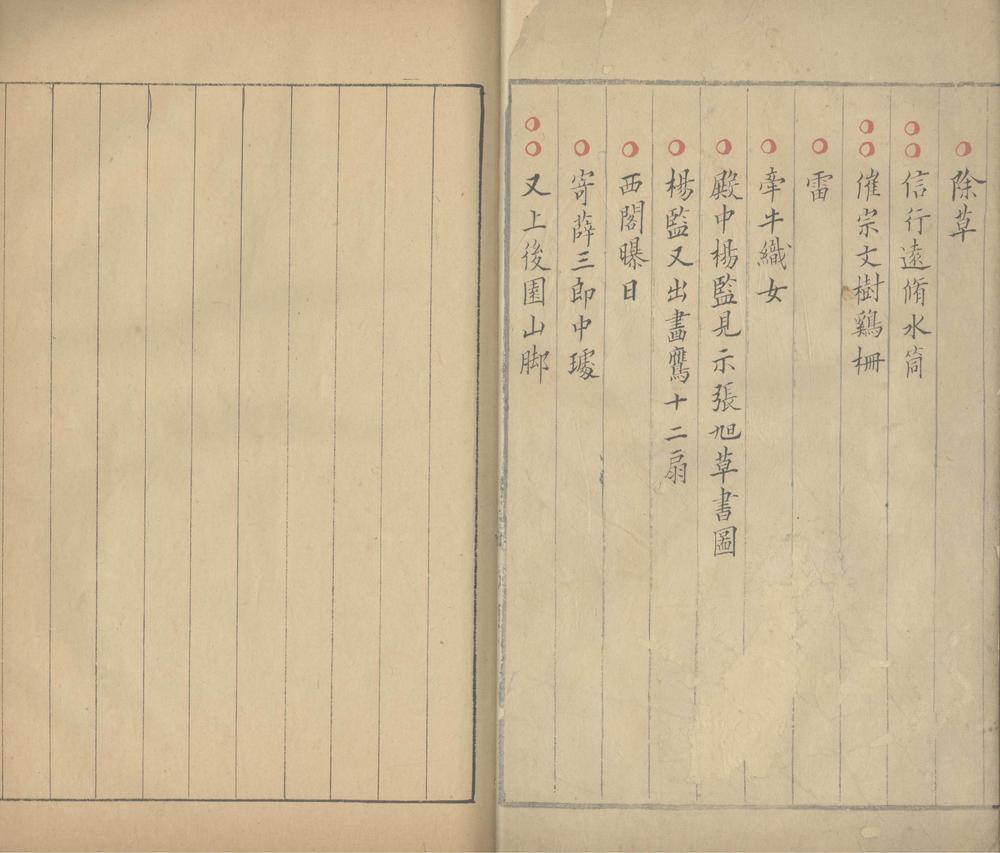 除草
信行遠脩水筒
催宗文樹鷄柵
雷
牽牛織女
殿中楊監見示張旭草書圖
楊監又出畫鷹十二扇
西閣曝日
寄薛三郎中璩
又上後園山脚